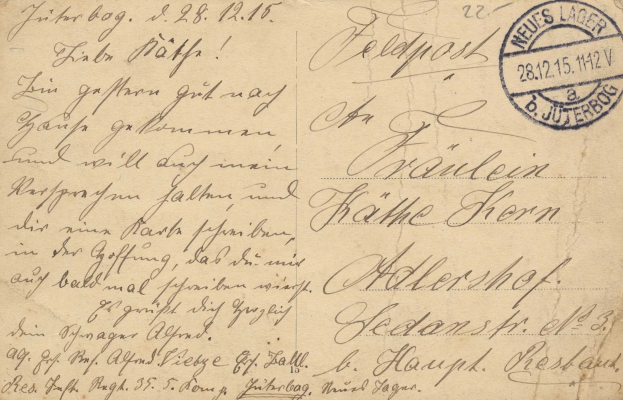 Jüterbog. d. 28.12.15.
Liebe Käthe!
Bin gestern gut nach
Hause gekommen
und will auch mein
Versprechen halten, und
dir eine Karte schreiben,
in der Hoffnung, das du mir
auch bald mal schreiben wirst.
Es grüßt dich herzlich
dein Schwager Alfred.
Ers. Res. Alfred Ers. Batl.
Res. Inft. Regt. 35. 5. Komp. Jüterbog. Neues Lager.
15
22.-
Feldpost
NEUES LAGER
28.12.15.11-12V
a
b. JÜTERBOG
An
Fräulein
Käthe Kern
Adlershof.
Sedanstr. No 3.
b. Haupt.